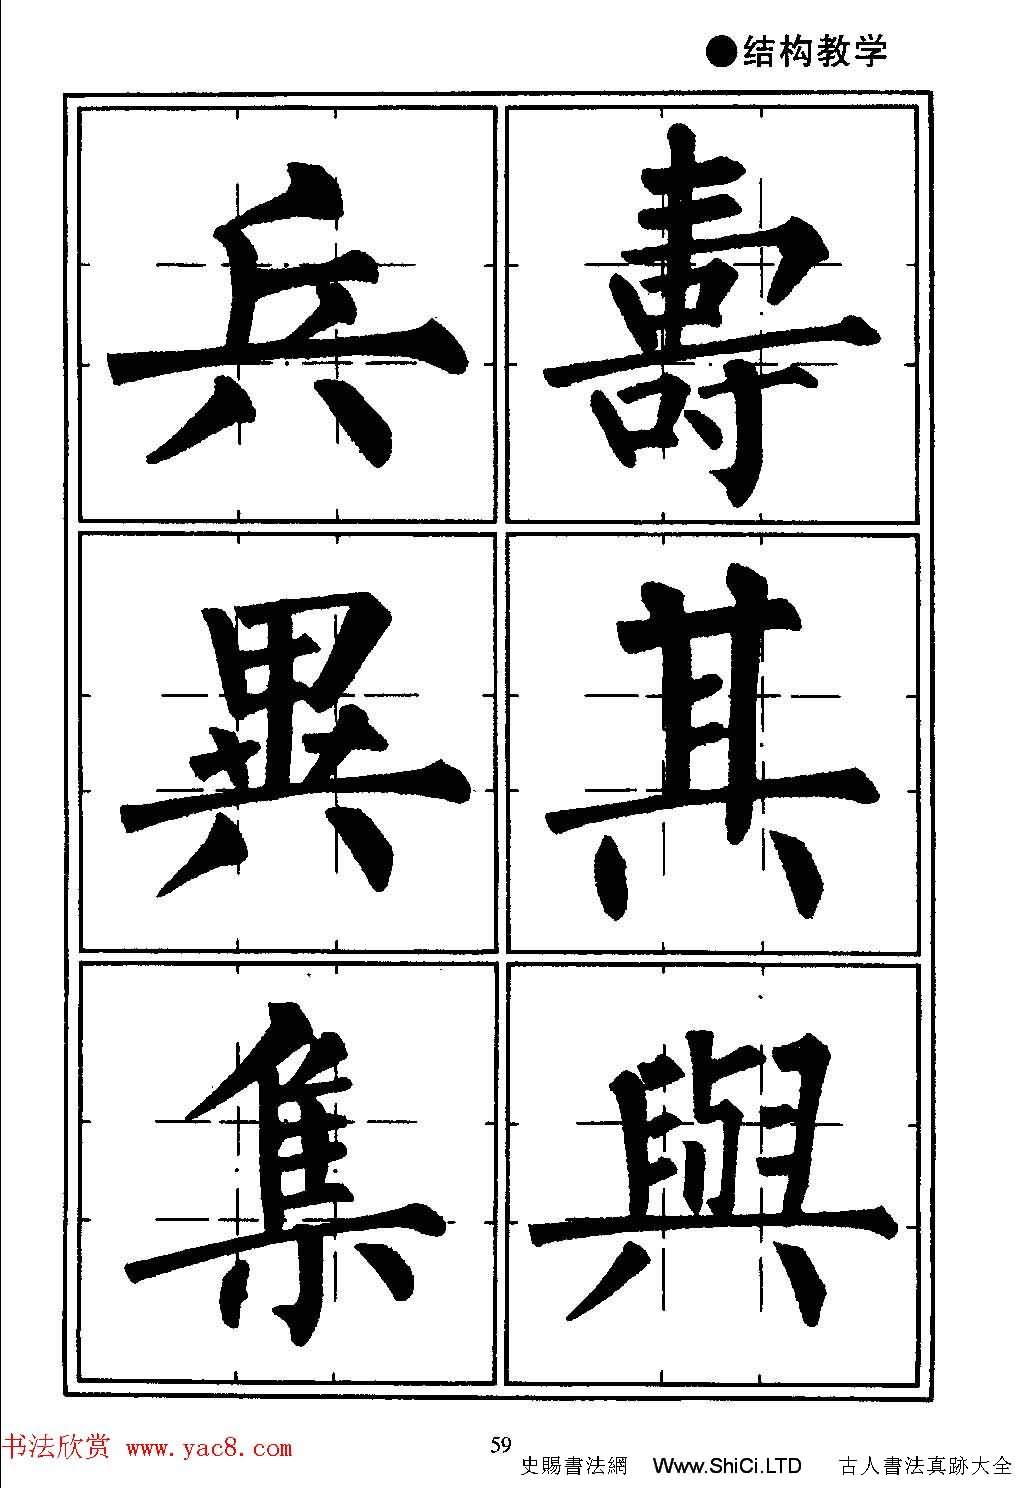 ●结构教学
壽其與
兵異集
59
书法欣赏 www.yac8.com
史賜書法網 Www.ShiCi.LTD 古人書法真跡大全